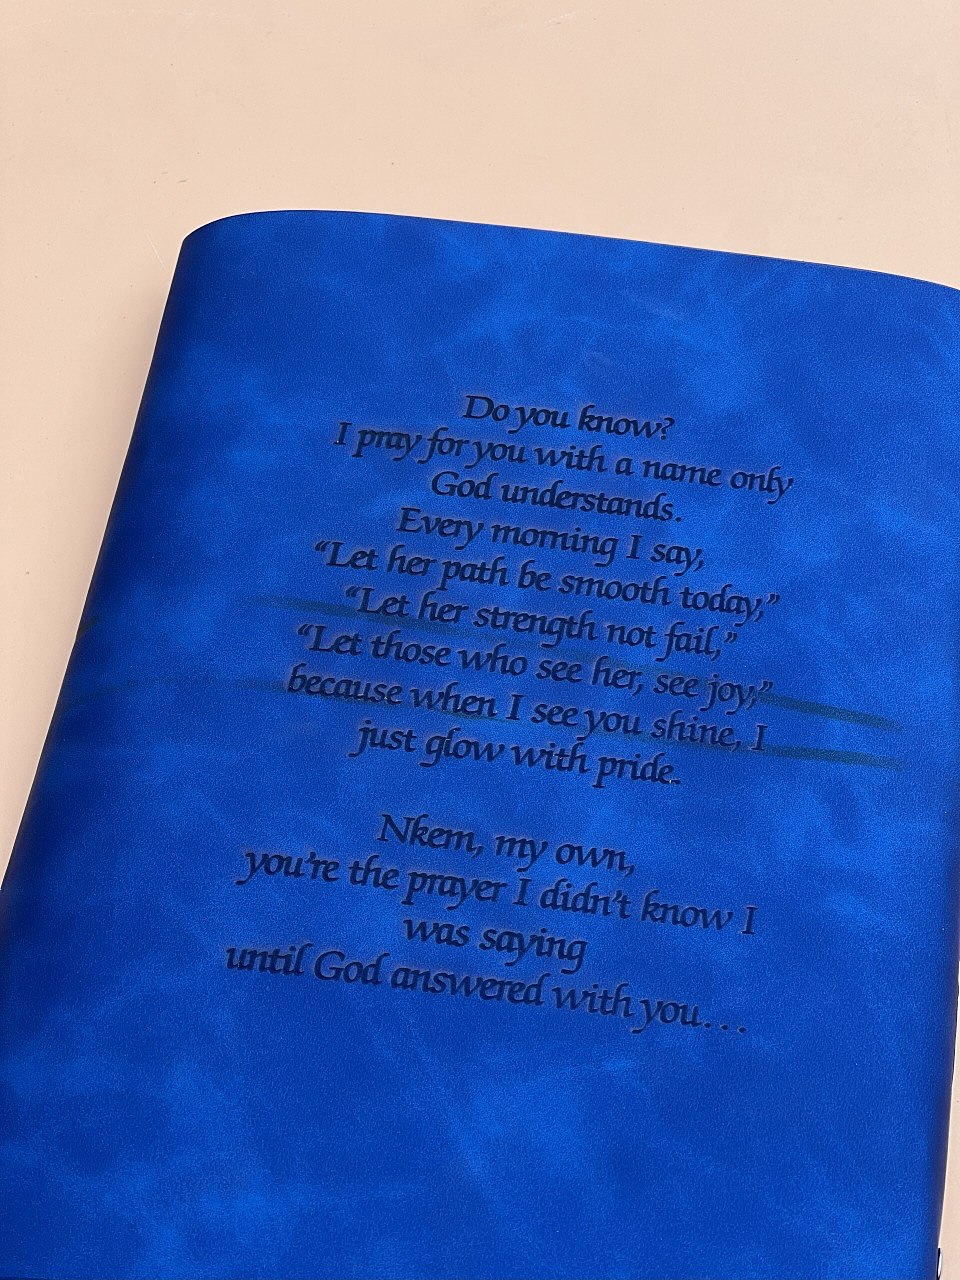 Do you know?
I pray for you with a name only
God understands.
Every morning I say,
“Let her path be smooth today,”
“Let her strength not fail,”
“Let those who see her, see joy,”
because when I see you shine, I
just glow with pride.
Nkem, my own,
you’re the prayer I didn’t know I
was saying
until God answered with you…